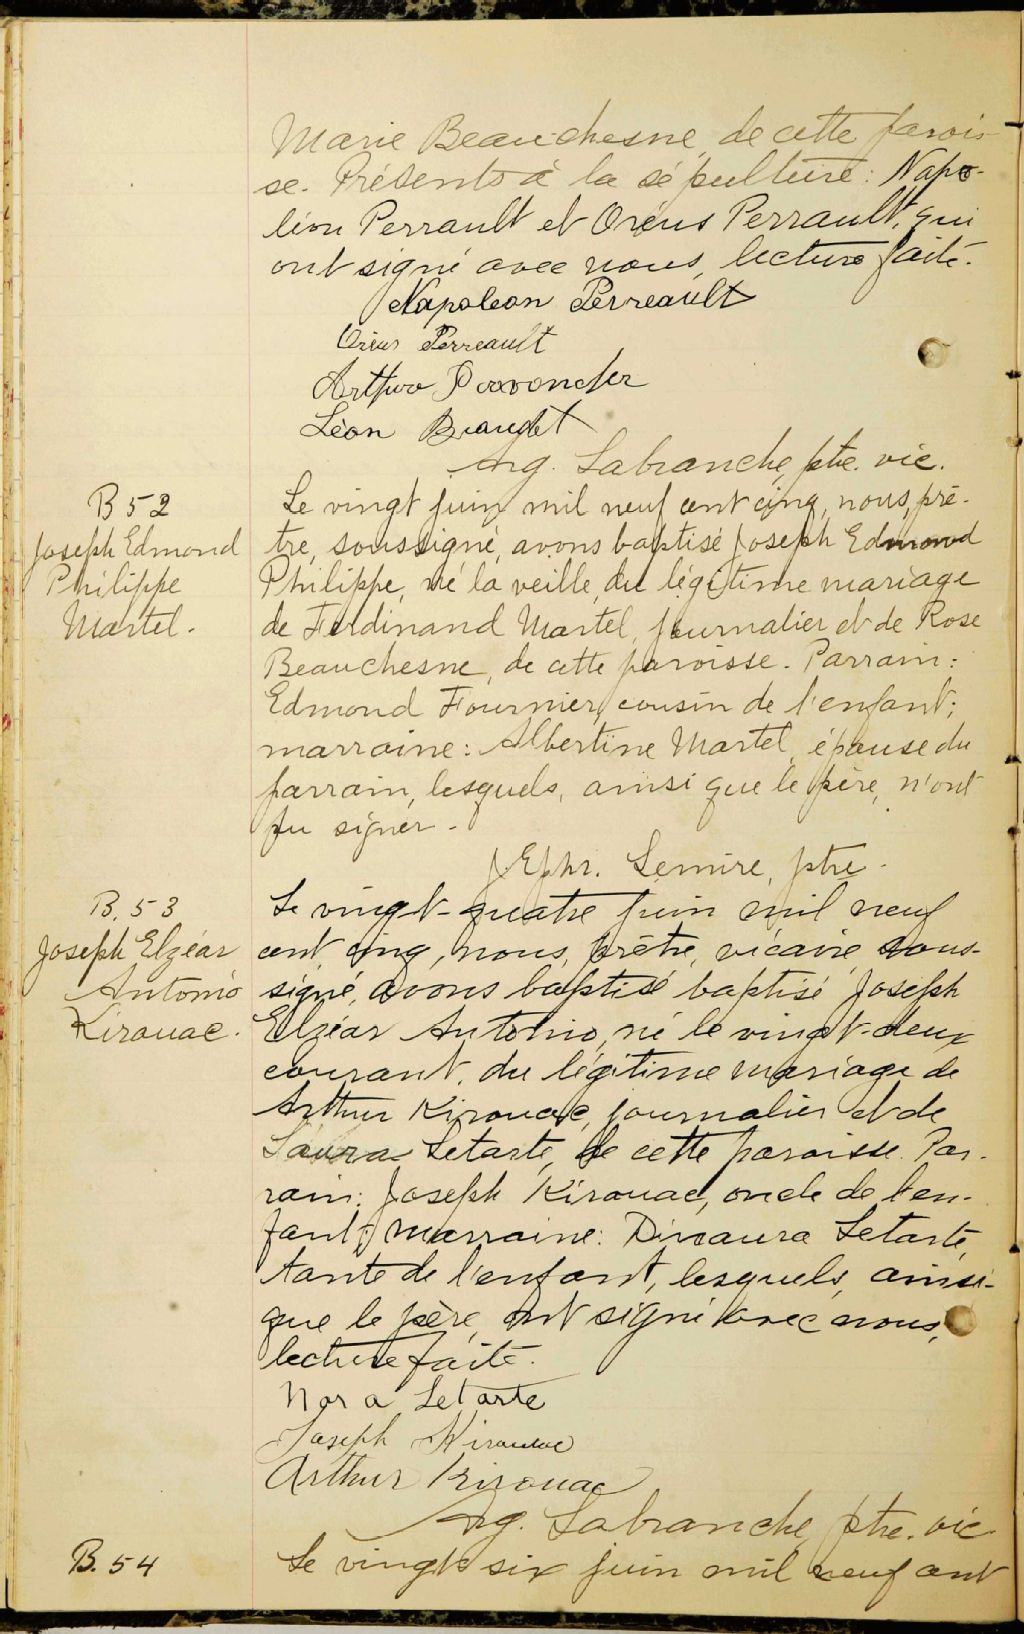 Marie Beauchesne, de cette parois-
se. Présents à la sépulture: Napo-
léon Perrault et Oréus Perrault, qui
ont signé avec nous, lecture faite.
Napoleon Perreault
Oréus Perreault
Arthur
Léon Beaudet
Aug. Labranche, ptre. vic.
B 52
Joseph Edmond
Philippe
Martel.
Le vingt juin mil neuf cent cinq, nous, prê-
tre, soussigné, avons baptisé Joseph Edmond
Philippe, né la veille, du légitime mariage
de Ferdinand Martel, journalier et de Rose
Beauchesne, de cette paroisse. Parrain:
Edmond Fournier, cousin de l'enfant;
marraine: Albertine Martel, épouse du
parrain, lesquels, ainsi que le père, n'ont
pu signer.
J. Ephr. Lemire, ptre.
B. 53
Joseph Elzéar
Antonio
Kirouac.
Le vingt-quatre juin mil neuf
cent cinq, nous, prêtre, vicaire, sous-
signé, avons baptisé baptisé Joseph
Elzéar Antonio, né le vingt-deux
courant, du légitime mariage de
Arthur Kirouac, journalier et de
Laura Letarte, de cette paroisse. Par-
rain: Joseph Kirouac, oncle de l'en-
fant; marraine: Letarte,
tante de l'enfant, lesquels, ainsi-
que le père, ont signé avec nous,
lecture faite.
Nora Letarte
Joseph Kirouac
Arthur Kirouac
Aug. Labranche, ptre. vic.
B. 54
Le vingt six juin mil neuf cent